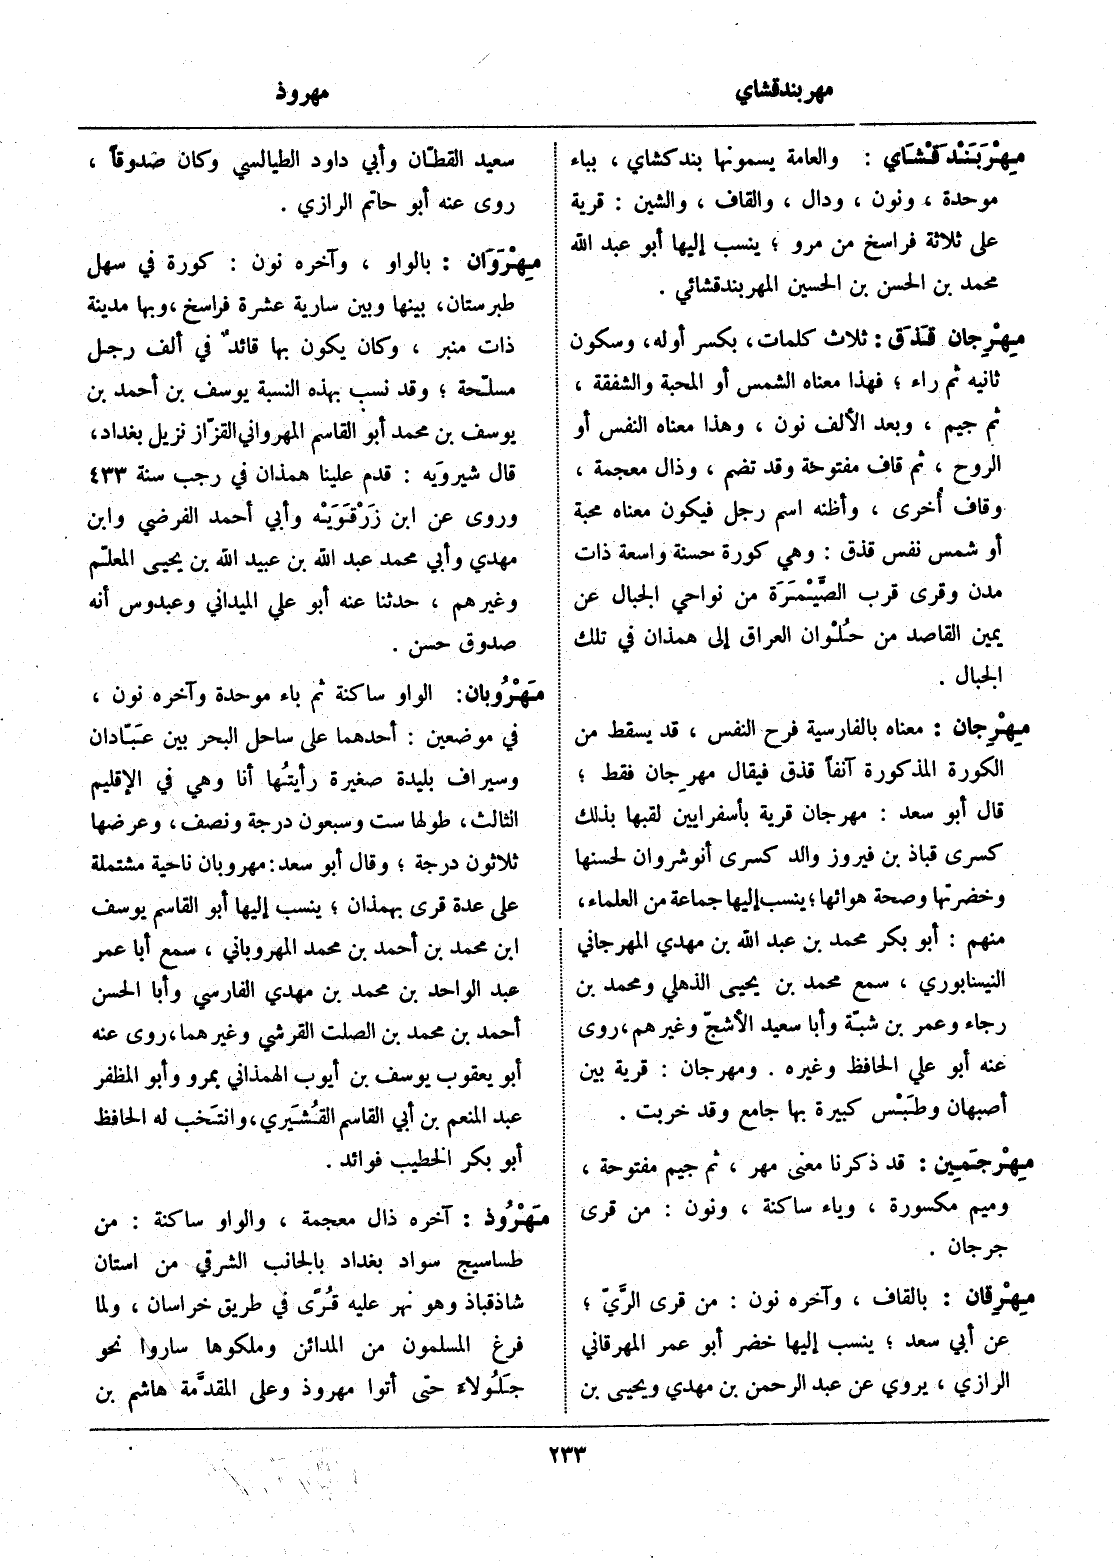 مهربندقشاي
مهروذ
مِهْرَبَنْدَقْشَاي : والعامة يسمونها بندكشاي ، بباء
موحدة ، ونون ، ودال ، والقاف ، والشين : قرية
على ثلاثة فراسخ من مرو ؛ ينسب إليها أبو عبد الله
محمد بن الحسن بن الحسين المهربندقشائي .
مِهْرِجان قَذَق : ثلاث كلمات ، بكسر أوله ، وسكون
ثانيه ثم راء ؛ فهذا معناه الشمس أو المحبة والشفقة ،
ثم جيم ، وبعد الألف نون ، وهذا معناه النفس أو
الروح ، ثم قاف مفتوحة وقد تضم ، وذال معجمة ،
وقاف أُخرى ، وأظنه اسم رجل فيكون معناه محبة
أو شمس نفس قذق : وهي كورة حسنة واسعة ذات
مدن وقرى قرب الصَّيْمَرَة من نواحي الجبال عن
يمين القاصد من حُلْوان العراق إلى همذان في تلك
الجبال .
مِهْرِجان : معناه بالفارسية فرح النفس ، قد يسقط من
الكورة المذكورة آنفاً قذق فيقال مهرجان فقط ؛
قال أبو سعد : مهرجان قرية بأسفرايين لقبها بذلك
كسرى قباذ بن فيروز والد كسرى أنوشروان لحسنها
وخضرتها وصحة هوائها ؛ ينسب إليها جماعة من العلماء ،
منهم : أبو بكر محمد بن عبد الله بن مهدي المهرجاني
النيسابوري ، سمع محمد بن يحيى الذهلي ومحمد بن
رجاء وعمر بن شبّة وأبا سعيد الأشجّ وغيرهم ، روى
عنه أبو علي الحافظ وغيره . ومهرجان : قرية بين
أصبهان وطَبَسْ كبيرة بها جامع وقد خربت .
مِهْرجَمِين : قد ذكرنا معنى مهر ، ثم جيم مفتوحة ،
وميم مكسورة ، وياء ساكنة ، ونون : من قرى
جرجان .
مِهْرِقان : بالقاف ، وآخره نون : من قرى الرَّيّ ؛
عن أبي سعد ؛ ينسب إليها خضر أبو عمر المهرقاني
الرازي ، يروي عن عبد الرحمن بن مهدي ويحيى بن
سعيد القطّان وأبي داود الطيالسي وكان صدوقاً ،
روى عنه أبو حاتم الرازي .
مِهْرَوَان : بالواو ، وآخره نون : كورة في سهل
طبرستان ، بينها وبين سارية عشرة فراسخ ، وبها مدينة
ذات منبر ، وكان يكون بها قائدٌ في ألف رجل
مسلّحة ؛ وقد نسب بهذه النسبة يوسف بن أحمد بن
يوسف بن محمد أبو القاسم المهرواني القزّاز نزيل بغداد ،
قال شيرويه : قدم علينا همذان في رجب سنة ٤٣٣
وروى عن ابن زَرْقَوَيْه وأبي أحمد الفرضي وابن
مهدي وأبي محمد عبد الله بن عبيد الله بن يحيى المعلّم
وغيرهم ، حدثنا عنه أبو علي الميداني وعبدوس أنه
صدوق حسن .
مَهْرُوبان : الواو ساكنة ثم باء موحدة وآخره نون ،
في موضعين : أحدهما على ساحل البحر بين عبّادان
وسيراف بليدة صغيرة رأيتُها أنا وهي في الإقليم
الثالث ، طولها ست وسبعون درجة ونصف ، وعرضها
ثلاثون درجة ؛ وقال أبو سعد : مهروبان ناحية مشتملة
على عدة قرى بهمذان ؛ ينسب إليها أبو القاسم يوسف
ابن محمد بن أحمد بن محمد المهروباني ، سمع أبا عمر
عبد الواحد بن محمد بن مهدي الفارسي وأبا الحسن
أحمد بن محمد بن الصلت القرشي وغيرهما ، روى عنه
أبو يعقوب يوسف بن أيوب الهمذاني بمرو وأبو المظفر
عبد المنعم بن أبي القاسم القُشَيري ، وانتَخب له الحافظ
أبو بكر الخطيب فوائد .
مَهْرُوذ : آخره ذال معجمة ، والواو ساكنة : من
طساسيج سواد بغداد بالجانب الشرقي من استان
شاذقباذ وهو نهر عليه قُرًى في طريق خراسان ، ولما
فرغ المسلمون من المدائن وملكوها ساروا نحو
جَلُولاء حتى أتوا مهروذ وعلى المقدَّمة هاشم بن
٢٣٣